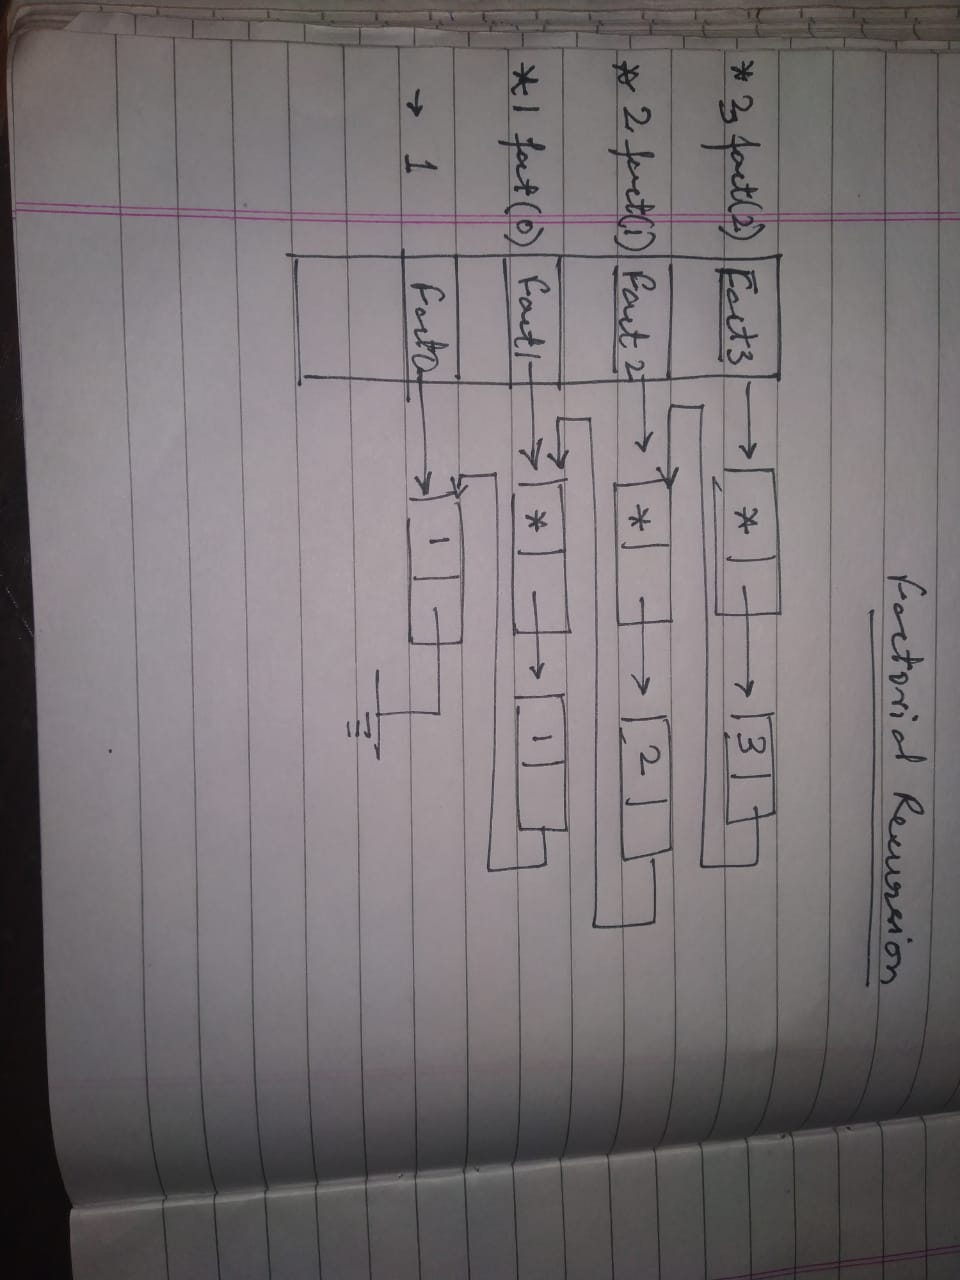 Factorial Recursion
* 3 fact(2) Fact3 → * → 3
* 2 fact(1) Fact 2 → * → 2
* 1 fact(0) Fact1 → * → 1
→ 1 Fact0 → 1